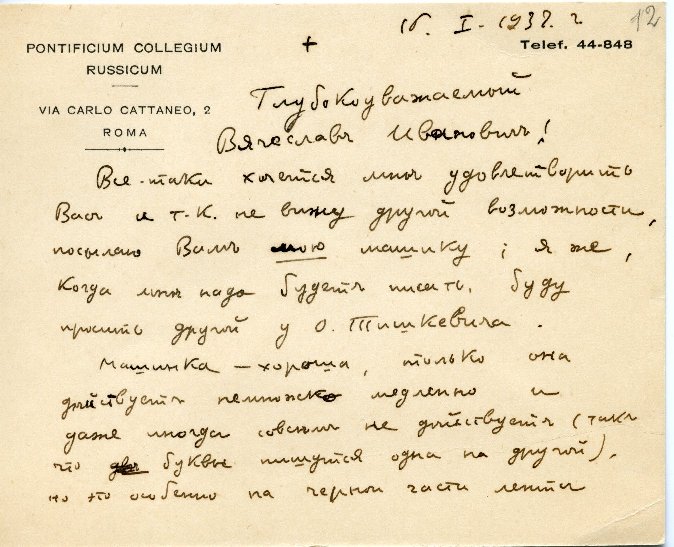 16. I. 1937. г
12
PONTIFICIUM COLLEGIUM
RUSSICUM
VIA CARLO CATTANEO, 2
ROMA
+
Telef. 44-848
Глубокоуважаемый
Вячеславъ Ивановичъ!
Все-таки хочется мнѣ удовлетворить
Васъ и т.к. не вижу другой возможности,
посылаю Вамъ мою машинку; я же,
когда мнѣ надо будетъ писать, буду
просить другой у О. Тишкевича.
Машинка – хороша, только она
дѣйствуетъ немножко медленно и
даже иногда совсѣмъ не дѣйствуетъ (такъ
что двѣ буквы пишутся одна на другой),
но это особенно на черной части ленты